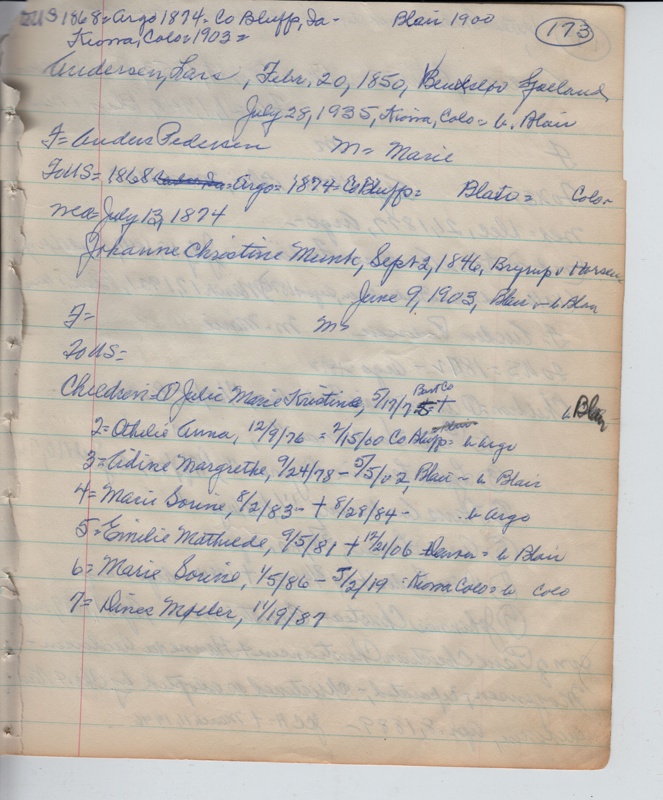 US 1868 = Argo 1874 - Co Bluffs, Ia - Blair 1900
173
Kiowa, Colo = 1903 =
Andersen, Lars, Febr. 20, 1850, Sjælland
July 28, 1935, Kiowa, Colo = b. Blair
F = Anders Pedersen M = Marie
To US = 1868 Argo = 1874 = Co Bluffs = Blair = Color
July 13, 1874
Johanne Christine Munk, Sept 2, 1846, Bryrup v Horsens
June 9, 1903, Blair - b Blair
F = M =
To US =
Children = 1) Julie Marie Kristine, 5/17/75 + b Blair
2 = Othelie Anna, 12/9/76 = 2/15/00 Co Bluffs = Blair b Argo
3 = Aidine Margrethe, 9/24/78 - 5/5/02, Blair - b Blair
4 = Marie Sorine, 8/2/83 - + 8/28/84 - b Argo
5 = Emilie Mathilde, 9/5/81 + 12/21/06 = = b Blair
6 = Marie Sorine, 1/5/86 - 5/2/19 = Kiowa Colo = b Colo
7 = Dines Moller, 11/19/87